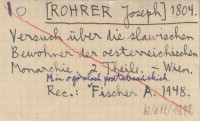 [ROHRER Joseph] 1804.
Versuch über die slawischen
Bewohner der oesterreichischen
Monarchie. 2 Theile. Wien.
Rec.: Fischer A. 1948.